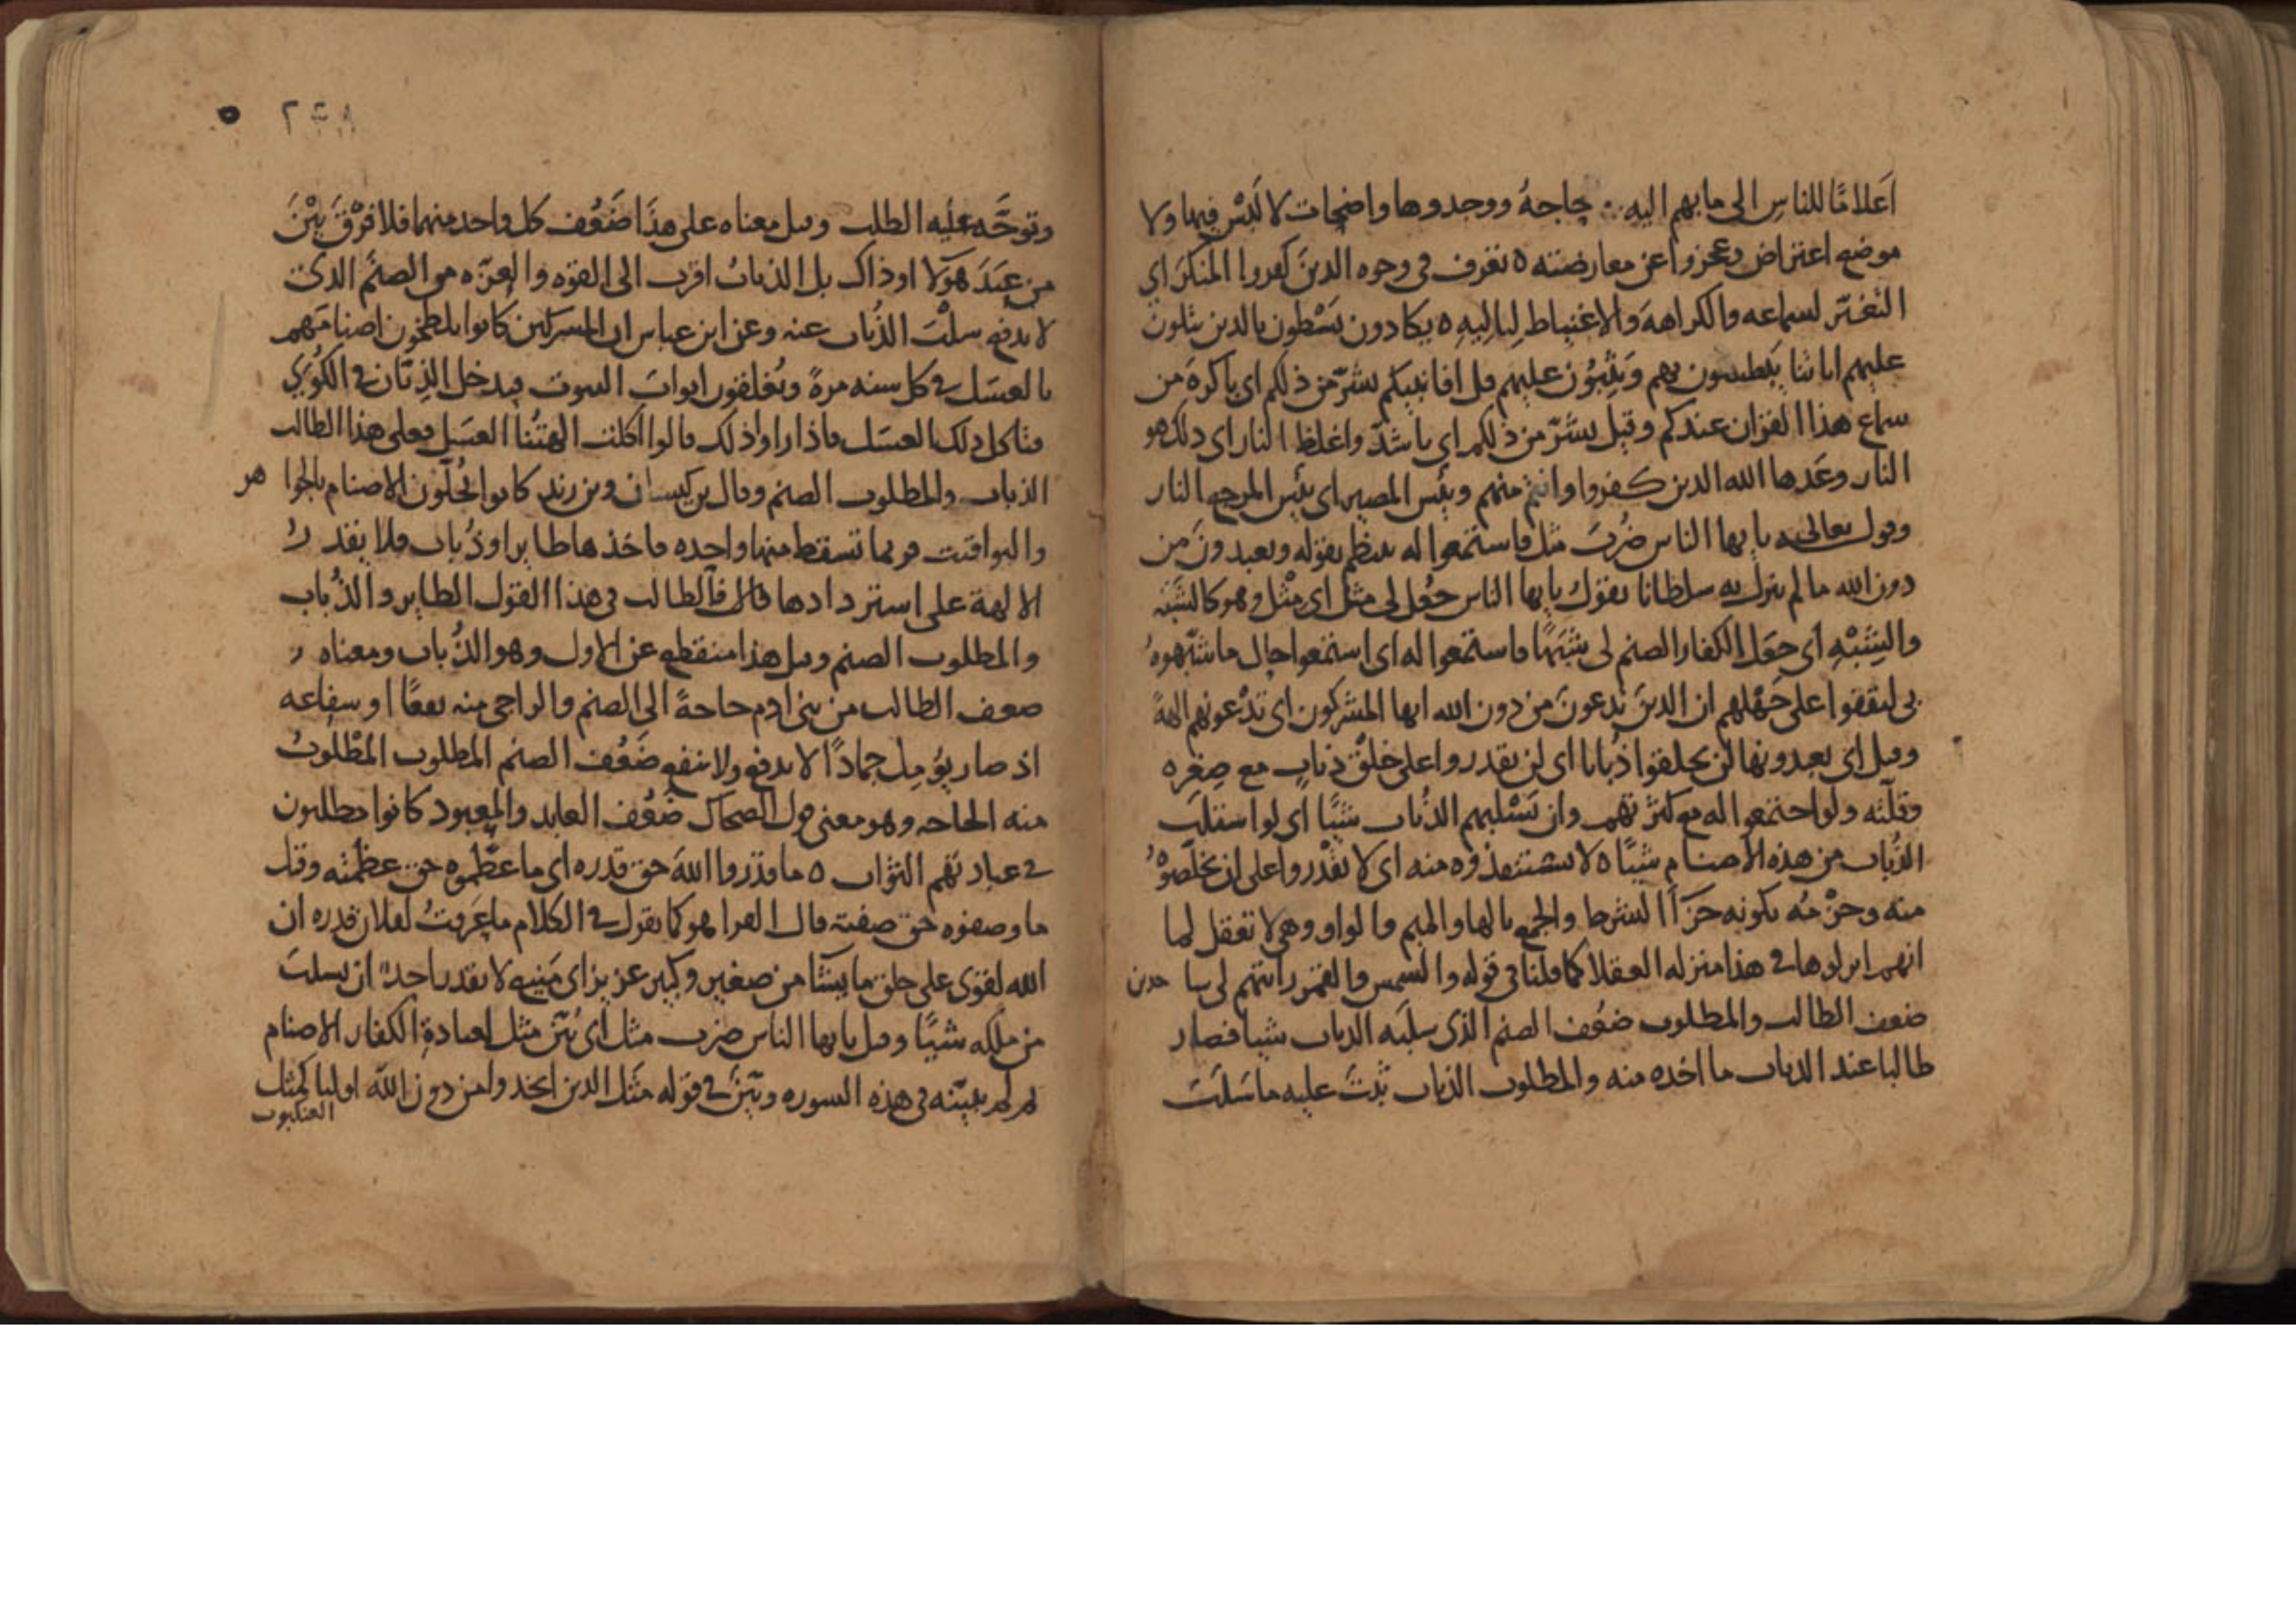 اَعلامًا للناسِ الى ما بهم اليه حاجةٌ ووجدوها واضحات لا لَبْس فيها ولا
موضع اعتراض وعجزوا عن معارضته ه تعرف في وجوه الدين كفروا المنكرَ اي
التغيّر لسماعه والكراهة والاغتياظ ه يكادون يَسْطون بالدين يتلون
عليهم اياتنا يَبطشون بهم وَيَثِبُون عليهم قل افانبيكم بشرّ من ذلكم اي باكرهَ من
سماع هذا القران عندكم وقيل بشرّ من ذلكم اي باشدّ واغلظ النار اي ذلك هو
النار وعَدها الله الدين كفروا وانتم منهم وبئس المصير اي بئس المرجع النار
وقول تعالى يا يها الناس ضُربَ مثل فاستمعوا له ينتظم بقوله ويعبدونَ من
دون الله ما لم ينزل به سلطانا يقول يا يها الناس جُعِل لي مثل اي مِثْل وهو كالشَبَه
والشِبْهِ اي جعَل الكفار الصنم لي شَبَهًا فاستمعوا له اي استمعوا حال ما شبّهوهُ
بي لتقفوا على جَهْلهم ان الدينَ تدعونَ من دون الله ايها المشركون اي تدْعونهم الهةً
وقيل اي يعبدونها لن يخلقوا ذُبابا اي لن يقدروا على خلْق ذباب مع صِغَره
وقلّته ولو اجتمعوا له مع كثرتهم وان يَسْلبهم الذُباب شيًا اي لو استلبَ
الذُباب من هذه الاصنام شيًا ه لا يستنقذوه منه اي لا يقْدروا على ان يخلّصوْهُ
منه وجزْمُه بكونه جزَآ الشرط والجمع بالها والميم وبالواو وهي لا تعقل لما
انهم انزلوها في هذا منزله العقلا كما قلنا في قوله والشمس والقمر رايتهم لي سا جدين
ضعف الطالب والمطلوب ضعُف الصنم الذى سلبَه الذباب شيا فصار
طالبا عند الدباب ما اخده منه والمطلوب الذباب ثبتَ عليه ما سَلَبَ
٢٣٨ ه
وتوجّه عليه الطلب وقيل معناه على هذَا ضَعُف كل واحد منهما فلا فرْقَ بيْنَ
من عَبَدَ هؤلا او ذاك بل الذبابُ اقرب الى القوه والعزّه من الصنَم الذى
لا يدفع سلْبَ الذُباب عنه وعن ابن عباس ان المشركين كانوا يلطخون اصنامهم
بالعسَل في كل سنه مرةً ويُغلقون ابوابَ البيوت فيدخل الذِبّان في الكُوَى
فتاكل ذلك العسَل فاذا راوا ذلك قالوا اكلت الهتُنا العسَل فعلى هذا الطالب
الذباب والمطلوب الصنم وقال بن كيسان وبن زيد كانوا يُحلّون الاصنام بالجوا هر
واليواقيت فربما تسقط منها واحده فاخذها طاير او ذُباب فلا يقدرُ
الالهة على استردادها قال فالطالب في هذا القول الطاير والذُباب
والمطلوب الصنم وقيل هذا منقطع عن الاول وهو الذُباب ومعناه
ضعف الطالب من بني ادم حاجةً الى الصنم والراجي منه نفعًا او شفاعه
اذ صار يؤمِل جمادًا لا يدفع ولا ينفع ضَعُف الصنم المطلوب المطْلوبُ
منه الحاجه وهو معنى قول الضحاك ضَعُف العابد والمعبود كانوا يطلبون
في عبادتهم الثواب ه ما قدَروا اللهَ حق قدره اي ما عظّموه حق عظَمته وقيل
ما وصفوه حق صفته قال الفرا هو كما يقول في الكلام ما عَرفتُ لفلان قدره ان
الله لقوى على خلق ما يشآ من صغير وكبير عزيز اي مَنيع لا يقدر احدٌ ان يسلبَ
من ملكه شيًا وقيل يا يها الناس ضرب مثل اي بُيّن مثل لعبادةِ الكفار الاصنام
ثم لم يبيّنه في هذه السوره وبيّنَ في قوله مَثل الدين اتخدوا من دون الله اوليا كمثل
العنكبوت